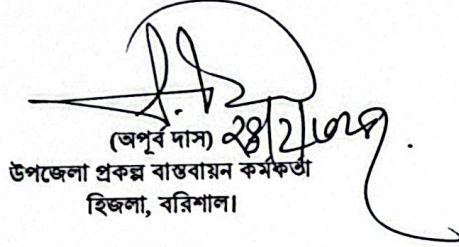 (অপূর্ব দাস)
উপজেলা প্রকল্প বাস্তবায়ন কর্মকর্তা
হিজলা, বরিশাল।